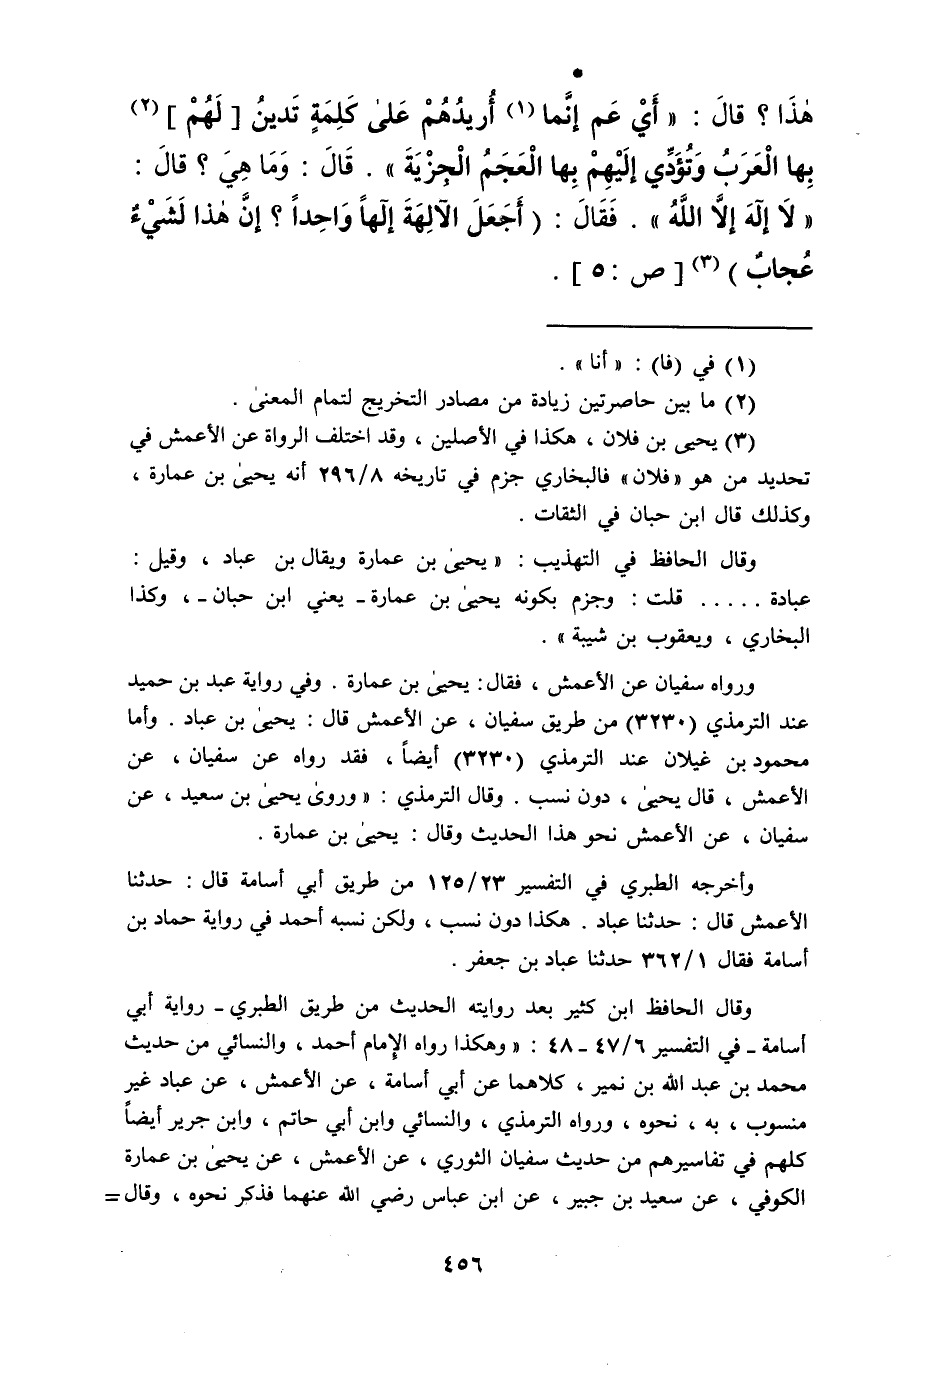 هٰذَا ؟ قالَ : « أَيْ عَم إنَّما (١) أُريدُهُمْ عَلىٰ كَلِمَةٍ تَدينُ [ لَهُمْ ] (٢)
بِها الْعَرَبُ وَتُؤَدِّي إلَيْهِمْ بِها الْعَجَمُ الْجِزْيَةَ » . قَالَ : وَمَا هِيَ ؟ قالَ :
« لَا إلَهَ إلاَّ اللَّهُ » . فَقَالَ : ( أَجَعَلَ الآلِهَةَ إلَهاً وَاحِداً ؟ إنَّ هٰذا لَشَيْءٌ
عُجابٌ ) (٣) [ ص : ٥ ] .
(١) في (فا) : « أنا » .
(٢) ما بين حاصرتين زيادة من مصادر التخريج لتمام المعنىٰ .
(٣) يحيى بن فلان ، هكذا في الأصلين ، وقد اختلف الرواة عن الأعمش في
تحديد من هو «فلان» فالبخاري جزم في تاريخه ٢٩٦/٨ أنه يحيىٰ بن عمارة ،
وكذلك قال ابن حبان في الثقات .
وقال الحافظ في التهذيب : « يحيىٰ بن عمارة ويقال بن عباد ، وقيل :
عبادة ..... قلت : وجزم بكونه يحيىٰ بن عمارة ـ يعني ابن حبان ـ ، وكذا
البخاري ، ويعقوب بن شيبة » .
ورواه سفيان عن الأعمش ، فقال: يحيىٰ بن عمارة . وفي رواية عبد بن حميد
عند الترمذي (٣٢٣٠) من طريق سفيان ، عن الأعمش قال : يحيىٰ بن عباد . وأما
محمود بن غيلان عند الترمذي (٣٢٣٠) أيضاً ، فقد رواه عن سفيان ، عن
الأعمش ، قال يحيىٰ ، دون نسب . وقال الترمذي : « وروىٰ يحيىٰ بن سعيد ، عن
سفيان ، عن الأعمش نحو هذا الحديث وقال : يحيىٰ بن عمارة .
وأخرجه الطبري في التفسير ١٢٥/٢٣ من طريق أبي أسامة قال : حدثنا
الأعمش قال : حدثنا عباد . هكذا دون نسب ، ولكن نسبه أحمد في رواية حماد بن
أسامة فقال ٣٦٢/١ حدثنا عباد بن جعفر .
وقال الحافظ ابن كثير بعد روايته الحديث من طريق الطبري ـ رواية أبي
أسامة ـ في التفسير ٤٧/٦ ـ ٤٨ : « وهكذا رواه الإمام أحمد ، والنسائي من حديث
محمد بن عبد الله بن نمير ، كلاهما عن أبي أسامة ، عن الأعمش ، عن عباد غير
منسوب ، به ، نحوه ، ورواه الترمذي ، والنسائي وابن أبي حاتم ، وابن جرير أيضاً
كلهم في تفاسيرهم من حديث سفيان الثوري ، عن الأعمش ، عن يحيىٰ بن عمارة
الكوفي ، عن سعيد بن جبير ، عن ابن عباس رضي الله عنهما فذكر نحوه ، وقال =
٤٥٦